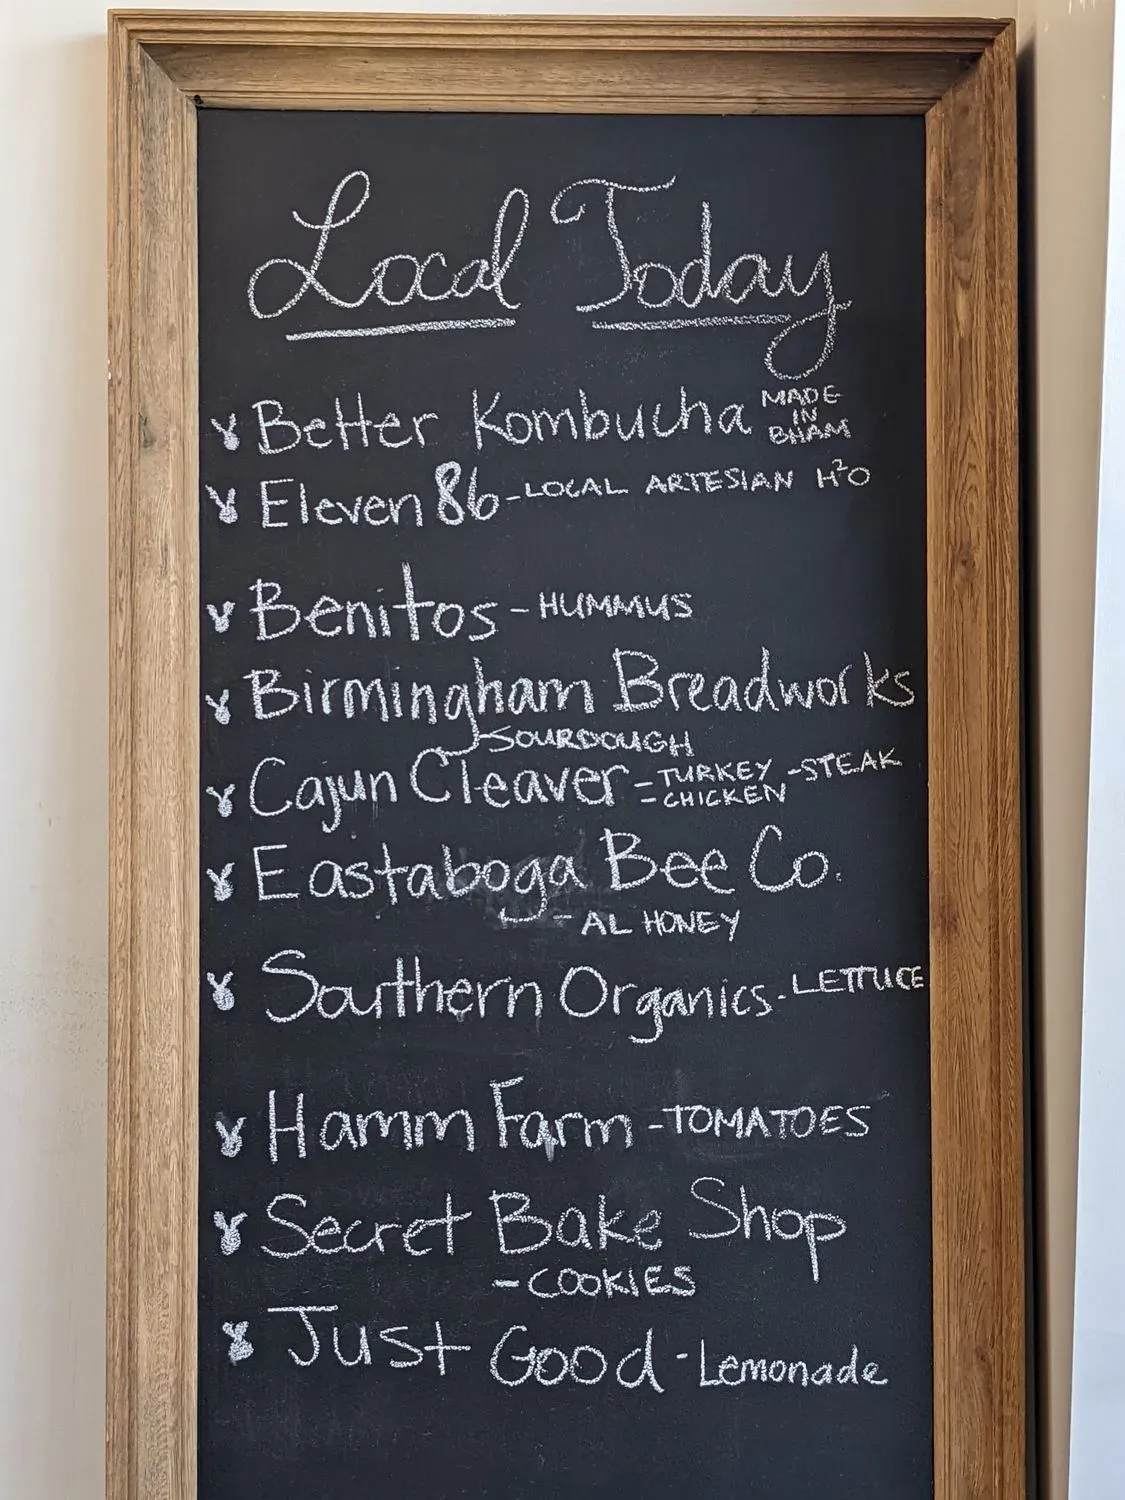 Local Today
Better Kombucha MADE
IN
BHAM
Eleven 86 - LOCAL ARTESIAN H²O
Benitos - HUMMUS
Birmingham Breadworks
- SOURDOUGH
Cajun Cleaver - TURKEY - STEAK
- CHICKEN
Eastaboga Bee Co.
- AL HONEY
Southern Organics - LETTUCE
Hamm Farm - TOMATOES
Secret Bake Shop
- COOKIES
Just Good - Lemonade